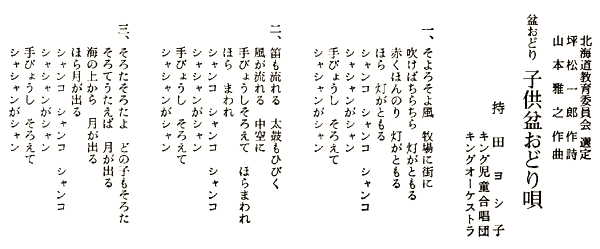 北海道教育委員会 選定
坪松一郎 作詩
山本雅之 作曲
盆おどり 子供盆おどり唄
持田ヨシ子
キング児童合唱団
キングオーケストラ
一、そよろそよ風 牧場に街に
吹けばちらちら 灯がともる
赤くほんのり 灯がともる
ほら 灯がともる
シャンコ シャンコ シャンコ
シャシャンがシャン
手びょうし そろえて
シャシャンがシャン
二、笛も流れる 太鼓もひびく
風が流れる 中空に
手びょうしそろえて ほらまわれ
ほら まわれ
シャンコ シャンコ シャンコ
シャシャンがシャン
手びょうし そろえて
シャシャンがシャン
三、そろたそろたよ どの子もそろた
そろてうたえば 月が出る
海の上から 月が出る
ほら月が出る
シャンコ シャンコ シャンコ
シャシャンがシャン
手びょうし そろえて
シャシャンがシャン